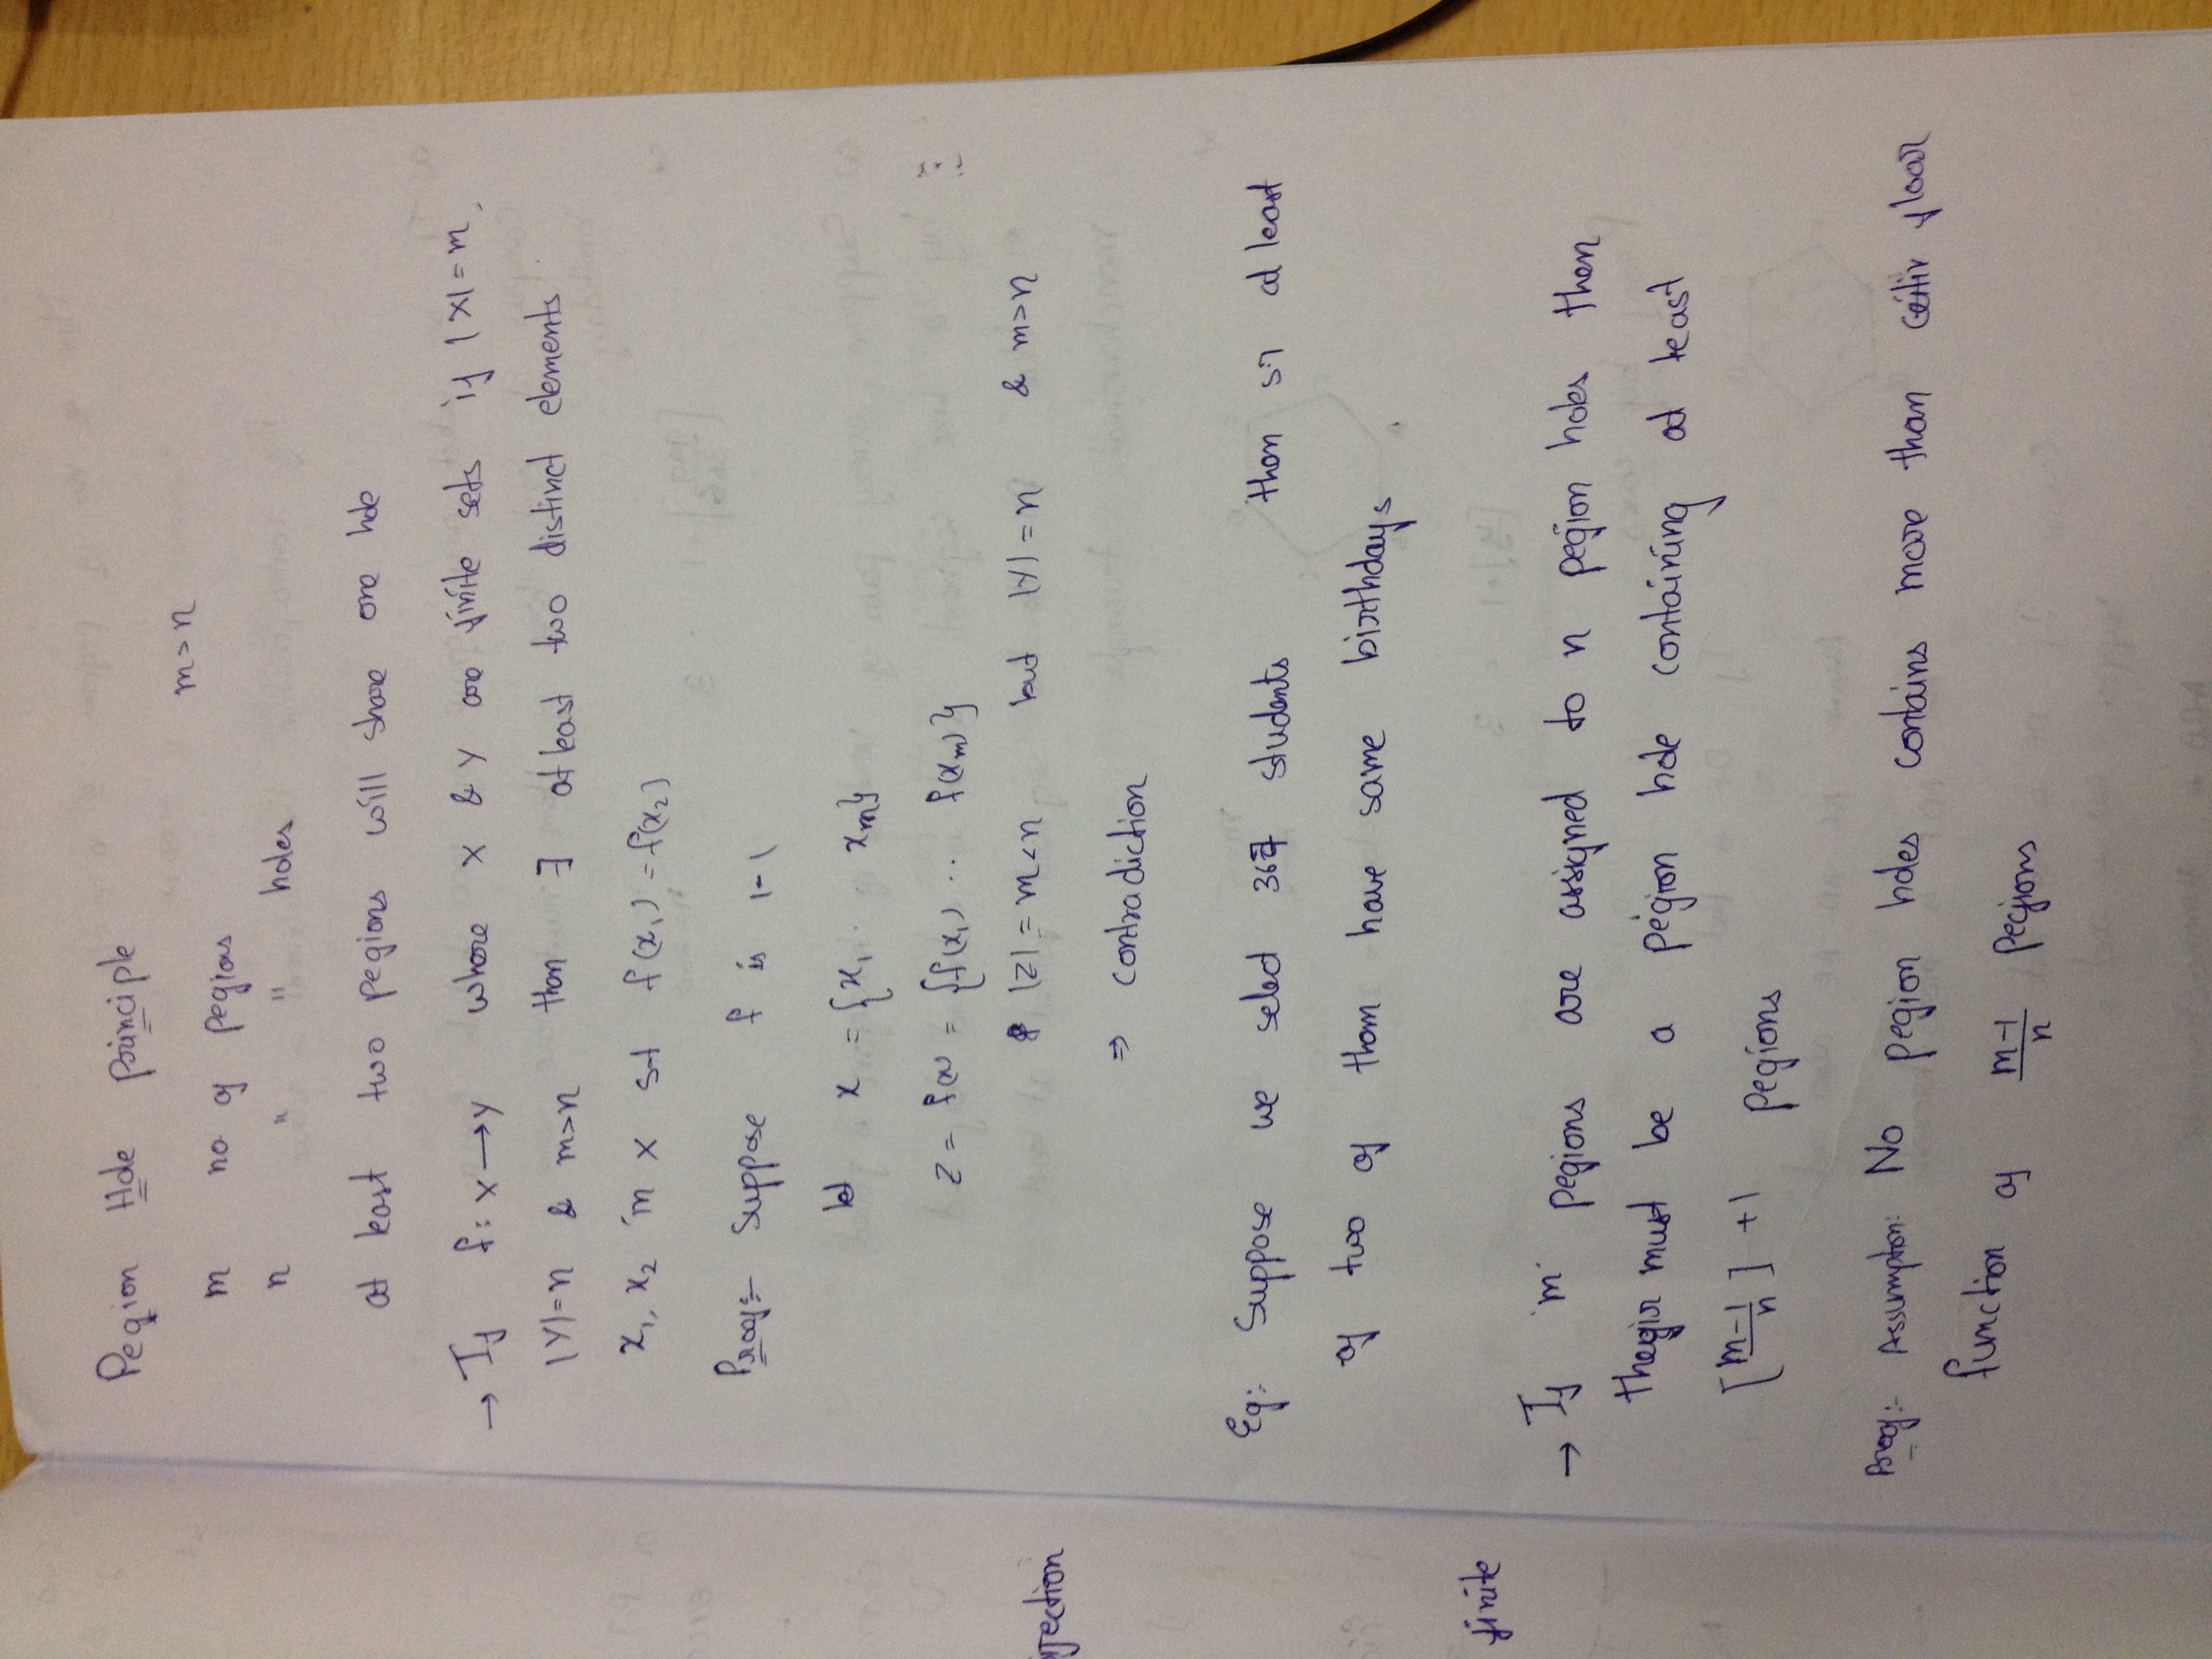 Pegion Hole Principle
m no of pegions m>n
n " " holes
at least two pegions will share one hole
→ If f: X→Y where X & Y are finite sets if |X|=m,
|Y|=n & m>n then ∃ atleast two distinct elements
x₁, x₂ in X s.t f(x₁)=f(x₂)
Proof:- Suppose f is 1-1
let X = {x₁ . . xm}
Z = f(x) = {f(x₁) ... f(xm)}
|Z|=m<n but |Y|=n & m>n
⇒ contradiction
Eg: Suppose we select 367 students then at least
of two of them have same birthdays
→ If 'm' pegions are assigned to n pegion holes then
there must be a pegion hole containing at least
[m-1/n] +1 pegions
Proof: Assumption: No pegion holes contains more than floor
function of m-1/n pegions
jection
finite